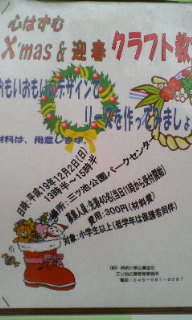 心はずむ
X'mas & 迎春 クラフト教
おもいおもいのデザインで
リースを作ってみましょう
材料は、用意します。
日時：平成19年12月2日(日)
13時半～15時半
場所：三ツ池公園パークセンター
募集人員：先着40名(当日11時から受付開始)
費用：300円(材料費)
対象：小学生以上(低学年は保護者同伴)